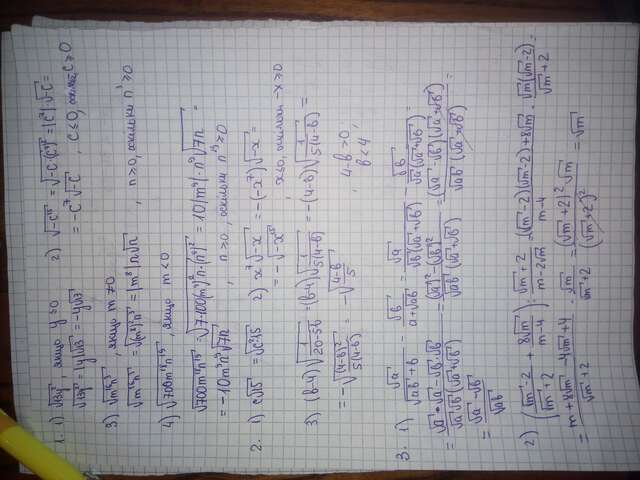 1. 1) √13y², якщо y ≥ 0
√13y² = |y|√13 = -y√13
2) √-c¹⁵ = √-c·(c⁷)² = |c⁷|·√-c =
= -c⁷√-c c ≤ 0, оскільки c ≥ 0
3) √m¹⁶n³, якщо m ≥ 0
√m¹⁶n³ = √(m⁸)²n³ = |m⁸|n√n, n ≥ 0, оскільки n³ ≥ 0
4) √700m⁸n¹⁵, якщо m < 0
√700m⁸n¹⁵ = √7·100(m⁴)²n·(n⁷)² = 10|m⁴|·n⁷√7n =
= -10m⁴n⁷√7n, n ≥ 0, оскільки n¹⁵ ≥ 0
2. 1) c√15 = √c²·15
2) x⁷√-x = -(-x⁷)√-x =
= -√-x¹⁵ x ≤ 0, оскільки -x ≥ 0
3) (b-4)√1/(20-5b) = (b-4)√1/5(4-b) = -(4-b)√1/5(4-b) =
= -√(4-b)²/5(4-b) = -√(4-b)/5, 4-b > 0,
b < 4
3. 1) √a/(√ab+b) - √b/(a+√ab) = √a/√b(√a+√b) - √b/√a(√a+√b) =
= (√a·√a-√b·√b)/√a√b(√a+√b) = ((√a)²-(√b)²)/√ab(√a+√b) = (√a-√b)(√a+√b)/√ab(√a+√b) =
= (√a-√b)/√ab
2) ((√m-2)/(√m+2) + 8√m/(m-4)) : (√m+2)/(m-2√m) = ((√m-2)(√m-2)+8√m)/(m-4) · √m(√m-2)/(√m+2) =
= (m+8√m-4√m+4)/(√m+2) · √m/(√m+2) = (√m+2)²√m/(√m+2)² = √m